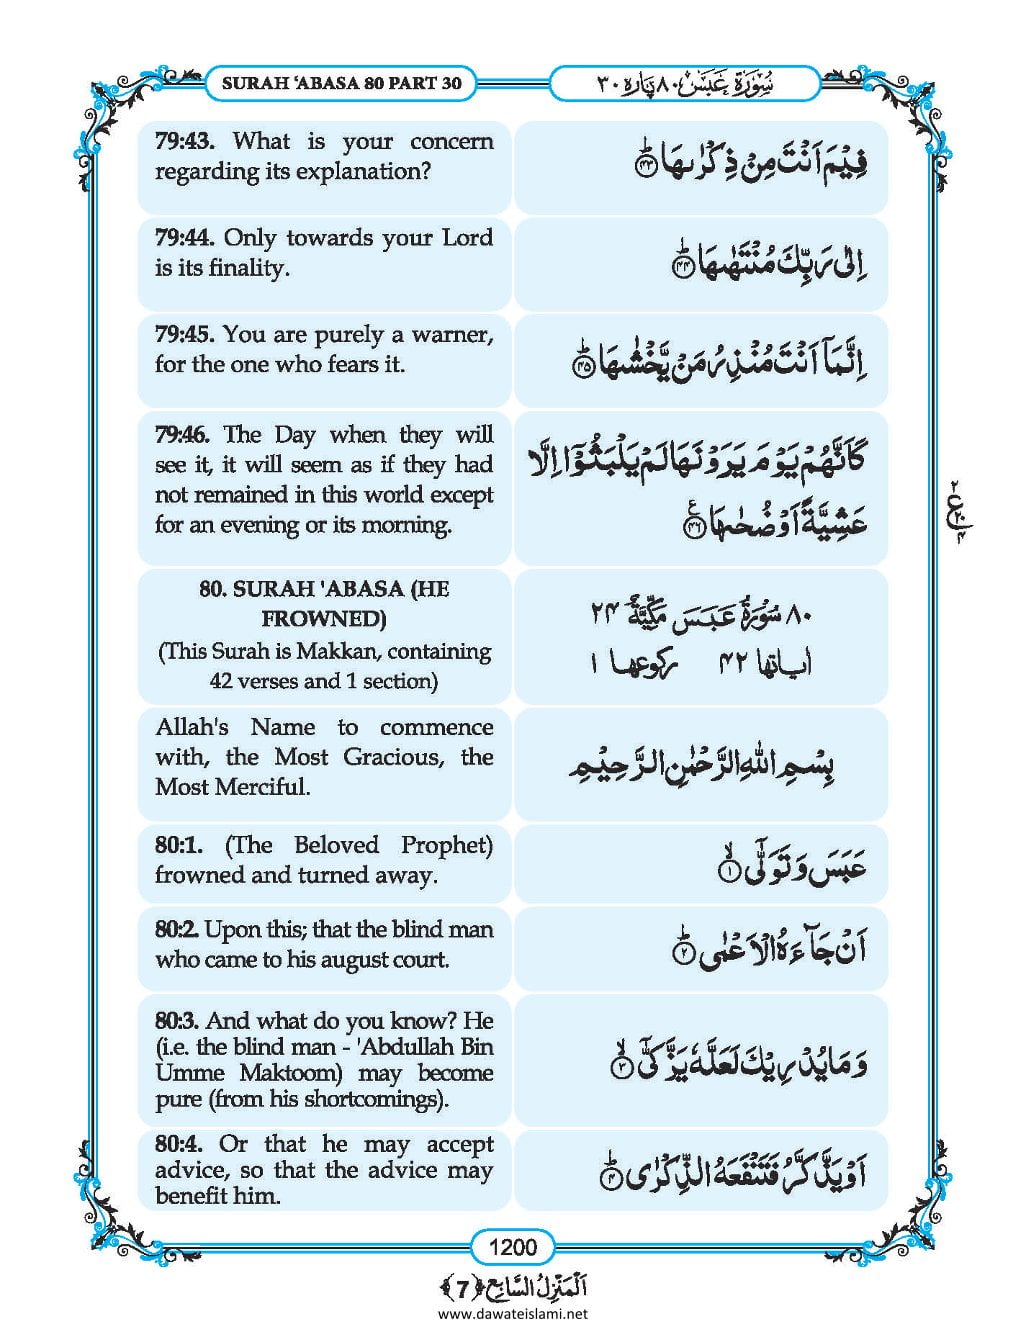 SURAH ‘ABASA 80 PART 30
سُوْرَةُ عَبَسَ ٨٠ پَارہ ٣٠
79:43. What is your concern
regarding its explanation?
فِيْمَ اَنْتَ مِنْ ذِكْرٰىهَا ؕ﴿۴۳﴾
79:44. Only towards your Lord
is its finality.
اِلٰى رَبِّكَ مُنْتَهٰىهَا ؕ﴿۴۴﴾
79:45. You are purely a warner,
for the one who fears it.
اِنَّمَاۤ اَنْتَ مُنْذِرُ مَنْ يَّخْشٰىهَا ؕ﴿۴۵﴾
79:46. The Day when they will
see it, it will seem as if they had
not remained in this world except
for an evening or its morning.
كَاَنَّهُمْ يَوْمَ يَرَوْنَهَا لَمْ يَلْبَثُوْۤا اِلَّا
عَشِيَّةً اَوْ ضُحٰىهَا ﴿۴۶﴾ ع
۲
ع ۲۰
۴
80. SURAH 'ABASA (HE
FROWNED)
(This Surah is Makkan, containing
42 verses and 1 section)
٨٠ سُوْرَةُ عَبَسَ مَكِّيَّةٌ ٢۴
اٰیاتها ۴٢ رکوعها ١
Allah's Name to commence
with, the Most Gracious, the
Most Merciful.
بِسْمِ اللهِ الرَّحْمٰنِ الرَّحِيْمِ
80:1. (The Beloved Prophet)
frowned and turned away.
عَبَسَ وَ تَوَلّٰۤى ۙ﴿۱﴾
80:2. Upon this; that the blind man
who came to his august court.
اَنْ جَآءَهُ الْاَعْمٰى ؕ﴿۲﴾
80:3. And what do you know? He
(i.e. the blind man - 'Abdullah Bin
Umme Maktoom) may become
pure (from his shortcomings).
وَ مَا يُدْرِيْكَ لَعَلَّهٗ يَزَّكّٰۤى ۙ﴿۳﴾
80:4. Or that he may accept
advice, so that the advice may
benefit him.
اَوْ يَذَّكَّرُ فَتَنْفَعَهُ الذِّكْرٰى ؕ﴿۴﴾
1200
اَلْمَنْزِلُ السَّابِع ﴿7﴾
www.dawateislami.net